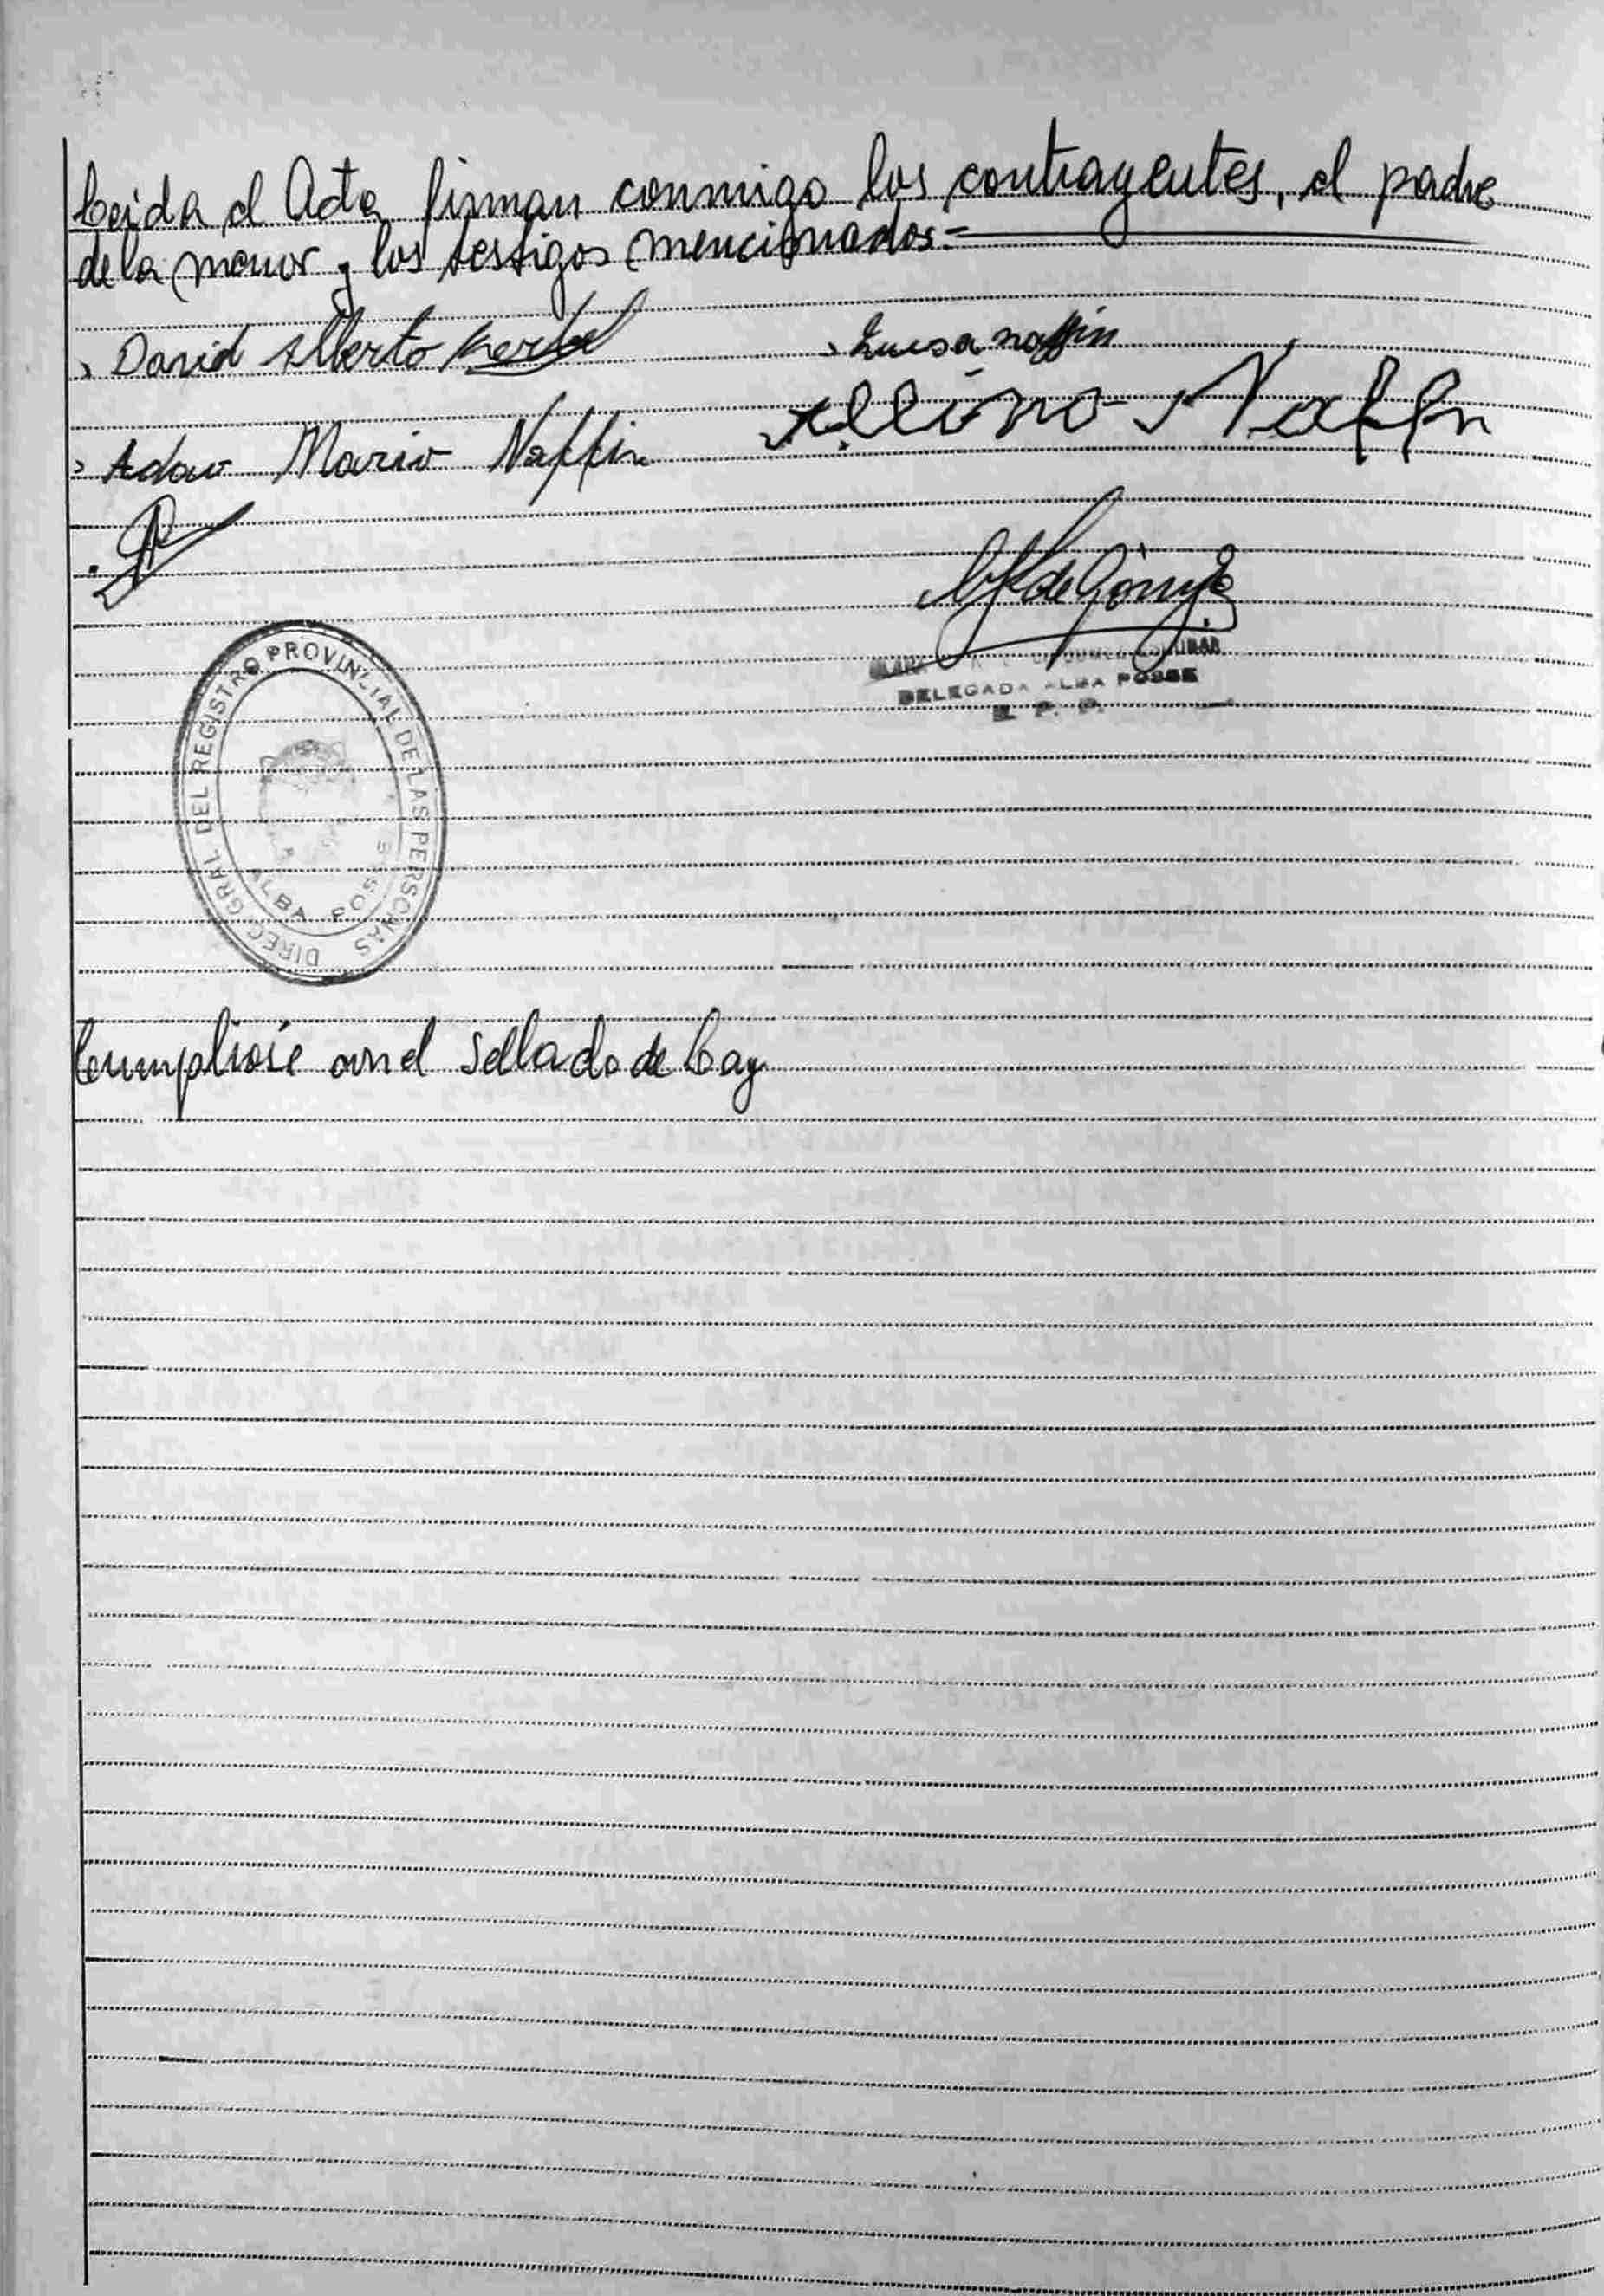 Leida el Acta firman conmigo los contrayentes, el padre
de la menor y los testigos mencionados=
David Alberto
Luisa Naffin
Albino Naffin
Adao Mario Naffin
de Gómez
DELEGADA ALBA POSSE
R. P. P.
DIREC. GRAL DEL REGISTRO PROVINCIAL DE LAS PERSONAS
ALBA POSSE
Cumpliose con el Sellado de Ley